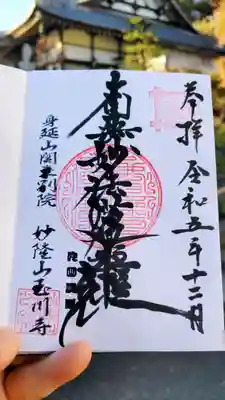 奉拝 令和五年十二月
南無妙法蓮華経
身延山関東別院
妙隆山玉川寺